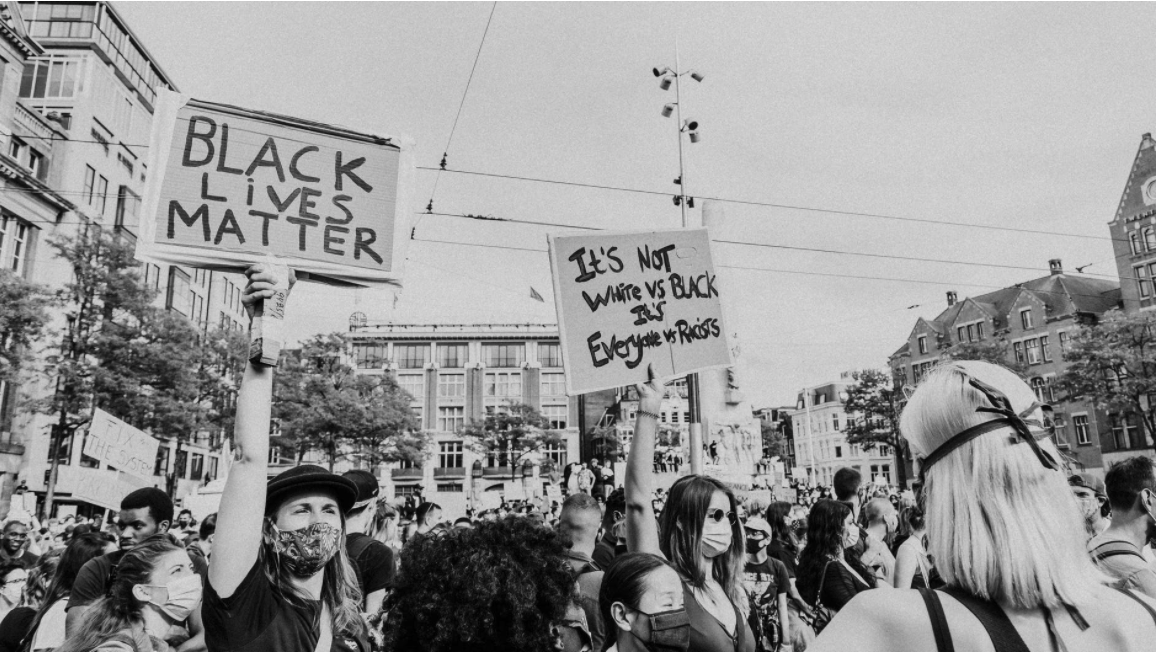 BLACK
LiVES
MATTER
It's NOT
WHite VS BLACK
It's
Everyone vs Racists
FIX
THE SYSTEM